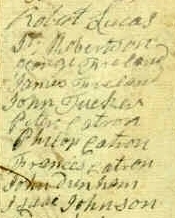 Robert Lucas
Wm. Robertson
George Freland
James Freland
John Tucker
Peter Catron
Philop Catron
Frances Catron
John Dunham
Isaac Johnson